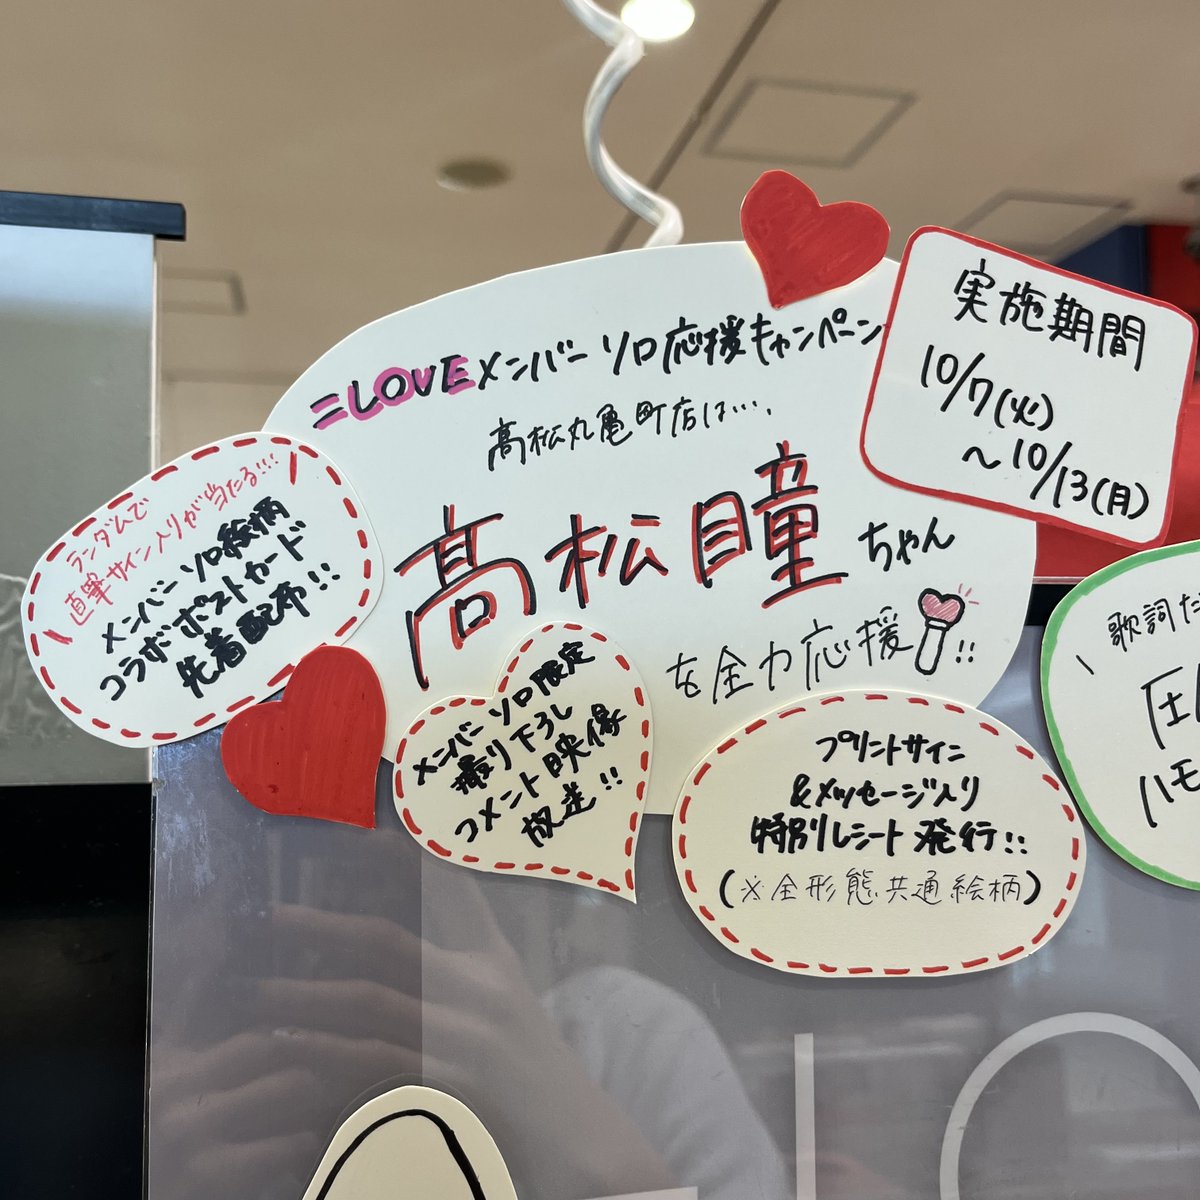 =LOVEメンバーソロ応援キャンペーン
高松丸亀町店は‥‥
高松瞳ちゃん
を全力応援!!
実施期間
10/7(火)
～10/13(月)
ランダムで
直筆サイン入りが当たる!!!
メンバーソロ絵柄
コラボポストカード
先着配布!!
メンバーソロ限定
撮り下ろし
コメント映像
放送!!
プリントサイン
&メッセージ入り
特別レシート発行!!
(※全形態共通絵柄)
歌詞た
圧
ハモ